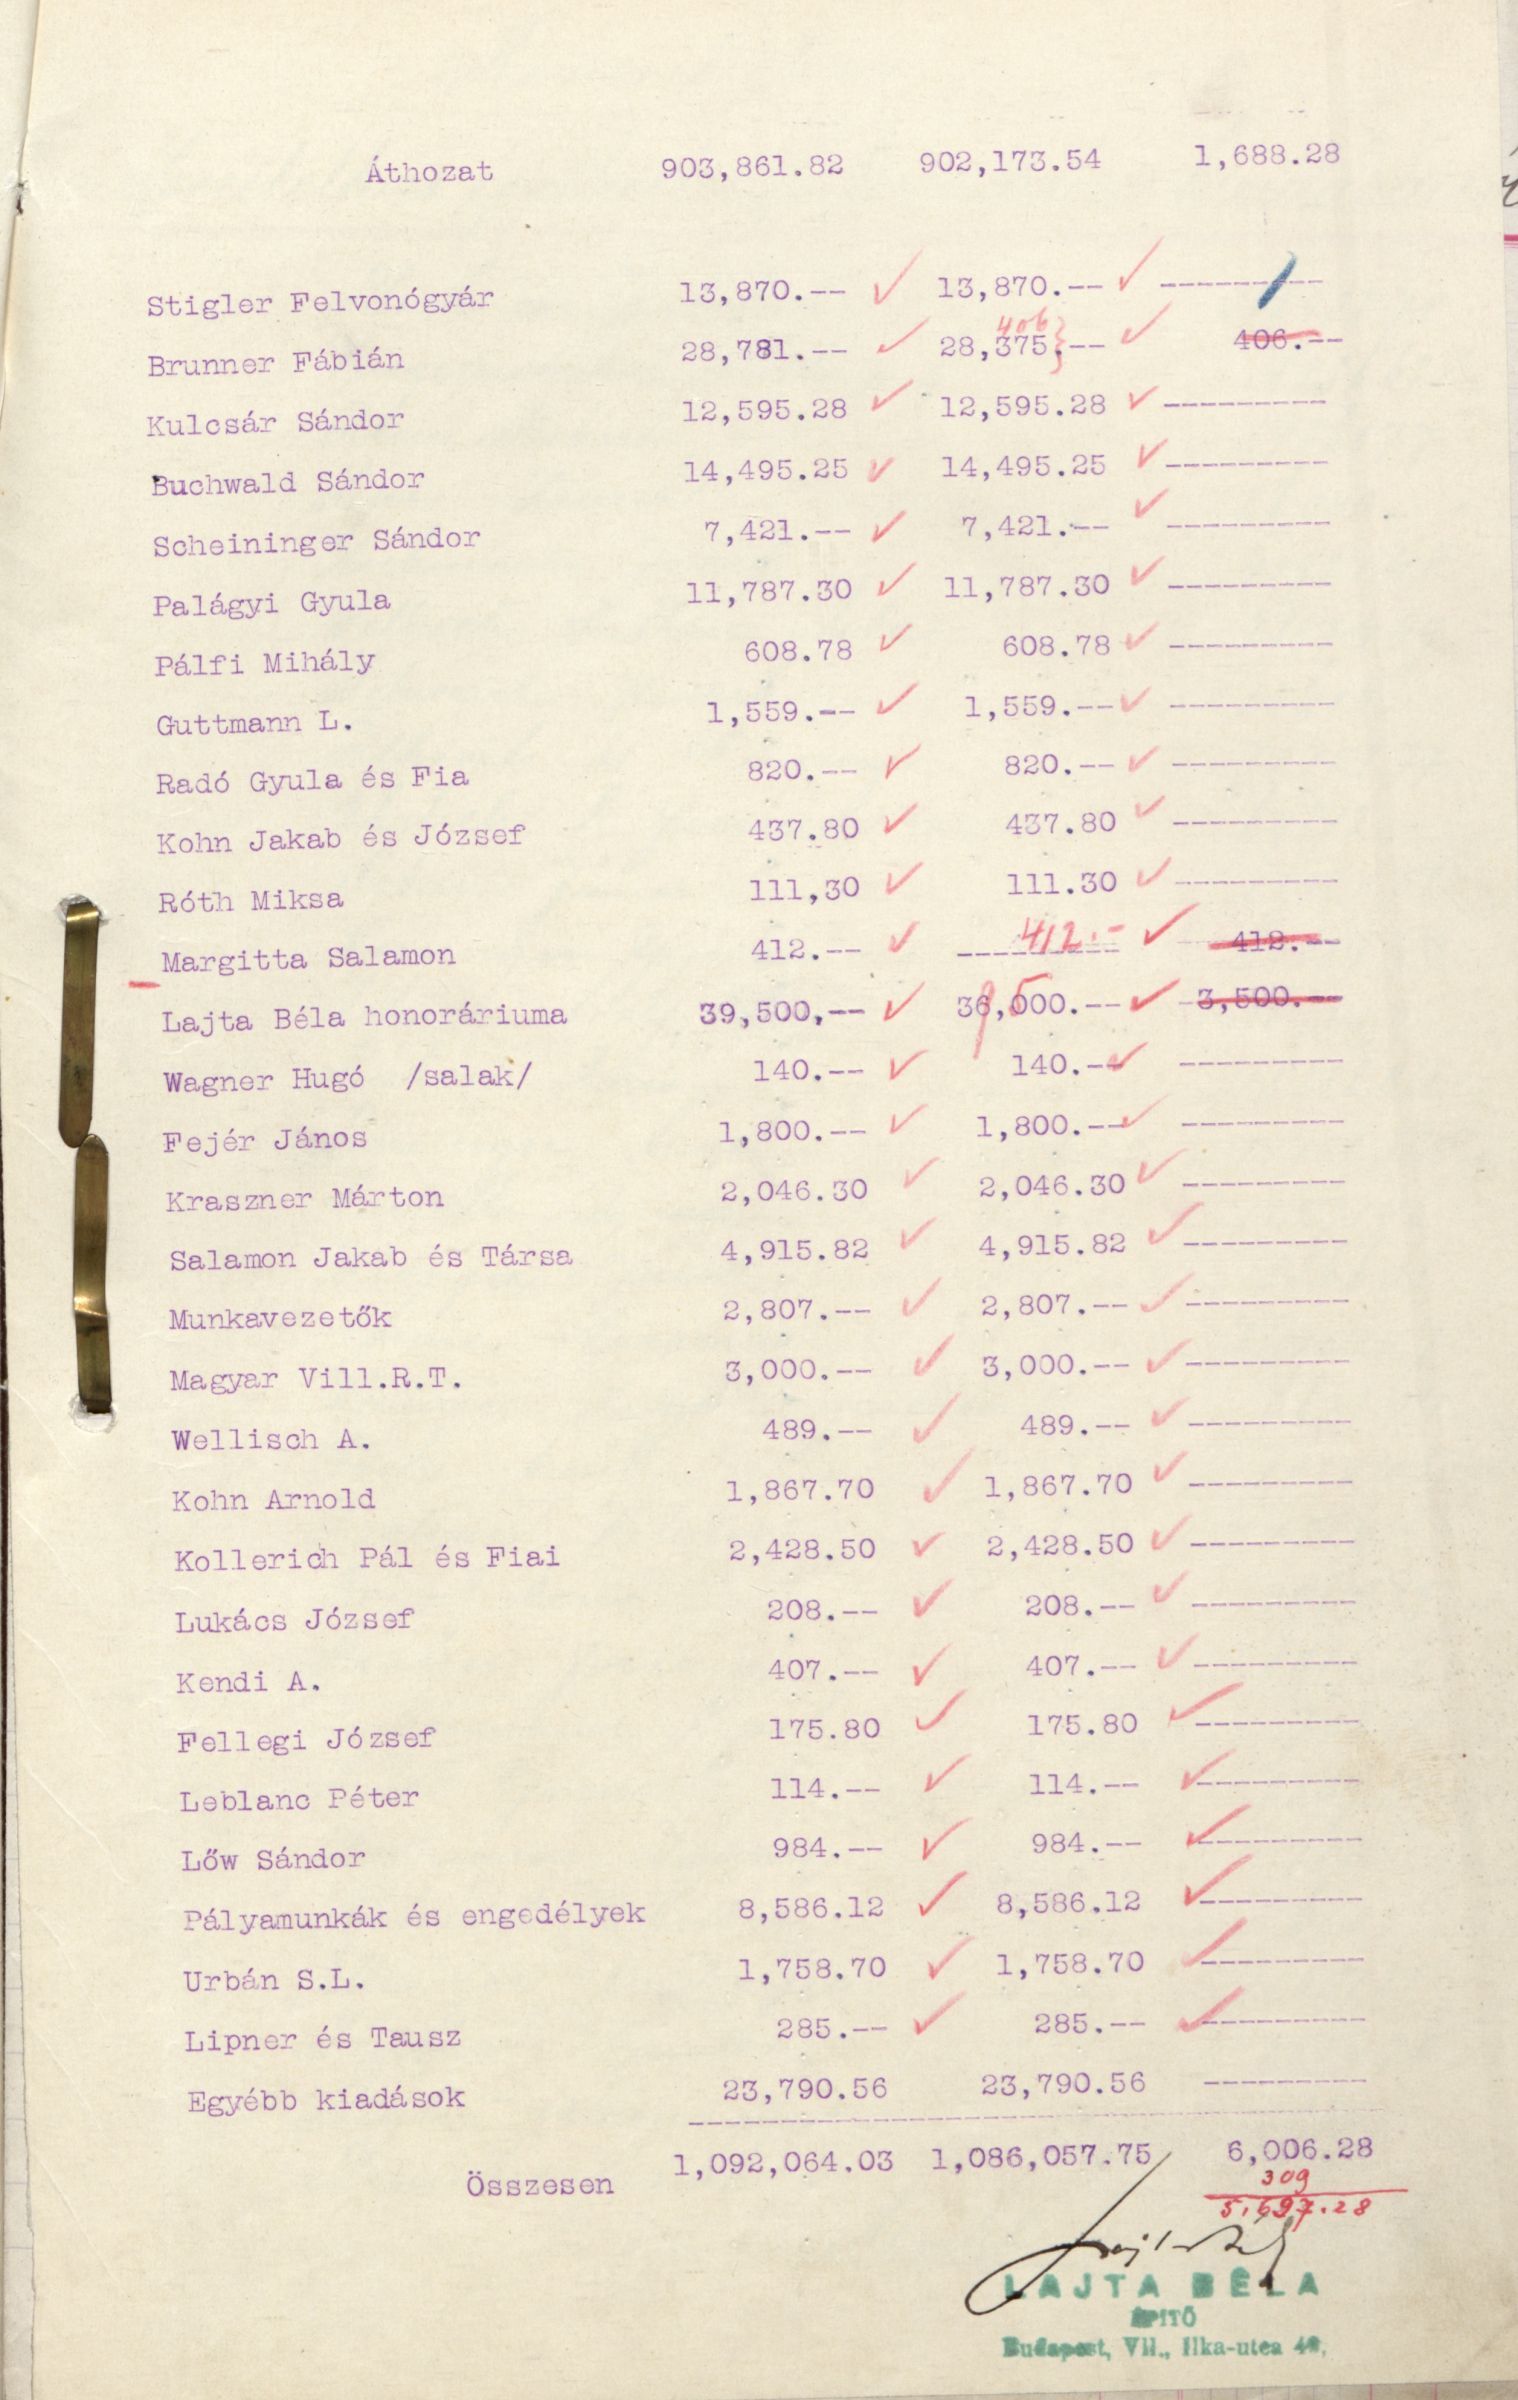 Áthozat 903,861.82 902,173.54 1,688.28
Stigler Felvonógyár 13,870.-- 13,870.-- ---------
406
Brunner Fábián 28,781.-- 28,375.-- 406.--
Kulcsár Sándor 12,595.28 12,595.28 ---------
Buchwald Sándor 14,495.25 14,495.25 ---------
Scheininger Sándor 7,421.-- 7,421.-- ---------
Palágyi Gyula 11,787.30 11,787.30 ---------
Pálfi Mihály 608.78 608.78 ---------
Guttmann L. 1,559.-- 1,559.-- ---------
Radó Gyula és Fia 820.-- 820.-- ---------
Kohn Jakab és József 437.80 437.80 ---------
Róth Miksa 111,30 111.30 ---------
Margitta Salamon 412.-- 412.- 412.--
Lajta Béla honoráriuma 39,500,-- 36,000.-- 3,500.--
Wagner Hugó /salak/ 140.-- 140.-- ---------
Fejér János 1,800.-- 1,800.-- ---------
Kraszner Márton 2,046.30 2,046.30 ---------
Salamon Jakab és Társa 4,915.82 4,915.82 ---------
Munkavezetők 2,807.-- 2,807.-- ---------
Magyar Vill.R.T. 3,000.-- 3,000.-- ---------
Wellisch A. 489.-- 489.-- ---------
Kohn Arnold 1,867.70 1,867.70 ---------
Kollerich Pál és Fiai 2,428.50 2,428.50 ---------
Lukács József 208.-- 208.-- ---------
Kendi A. 407.-- 407.-- ---------
Fellegi József 175.80 175.80 ---------
Leblanc Péter 114.-- 114.-- ---------
Lőw Sándor 984.-- 984.-- ---------
Pályamunkák és engedélyek 8,586.12 8,586.12 ---------
Urbán S.L. 1,758.70 1,758.70 ---------
Lipner és Tausz 285.-- 285.-- ---------
Egyébb kiadások 23,790.56 23,790.56 ---------
Összesen 1,092,064.03 1,086,057.75 6,006.28
309
5.697.28
LAJTA BÉLA
ÉPITŐ
Budapest, VII., Ilka-utca